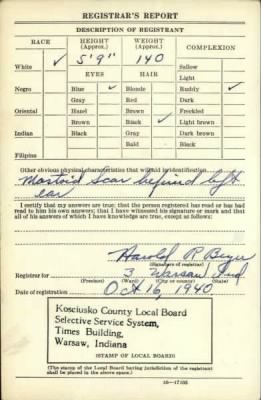 REGISTRAR'S REPORT
DESCRIPTION OF REGISTRANT
RACE HEIGHT (Approx.) WEIGHT (Approx.) COMPLEXION
White ✓ 5'9" 140 Sallow
Light
EYES HAIR
Negro Blue ✓ Blonde Ruddy ✓
Gray Red Dark
Oriental Hazel Brown Freckled
Brown Black ✓ Light brown
Indian Black Gray Dark brown
Bald Black
Filipino
Other obvious physical characteristics that will aid in identification
Mastoid scar behind left
ear
I certify that my answers are true; that the person registered has read or has had
read to him his own answers; that I have witnessed his signature or mark and that
all of his answers of which I have knowledge are true, except as follows:
Harold R
(Signature of registrar)
Registrar for 3 Warsaw Ind
(Precinct) (Ward) (City or county) (State)
Date of registration Oct 16, 1940
Kosciusko County Local Board
Selective Service System,
Times Building,
Warsaw, Indiana
(STAMP OF LOCAL BOARD)
(The stamp of the Local Board having jurisdiction of the registrant
shall be placed in the above space.)